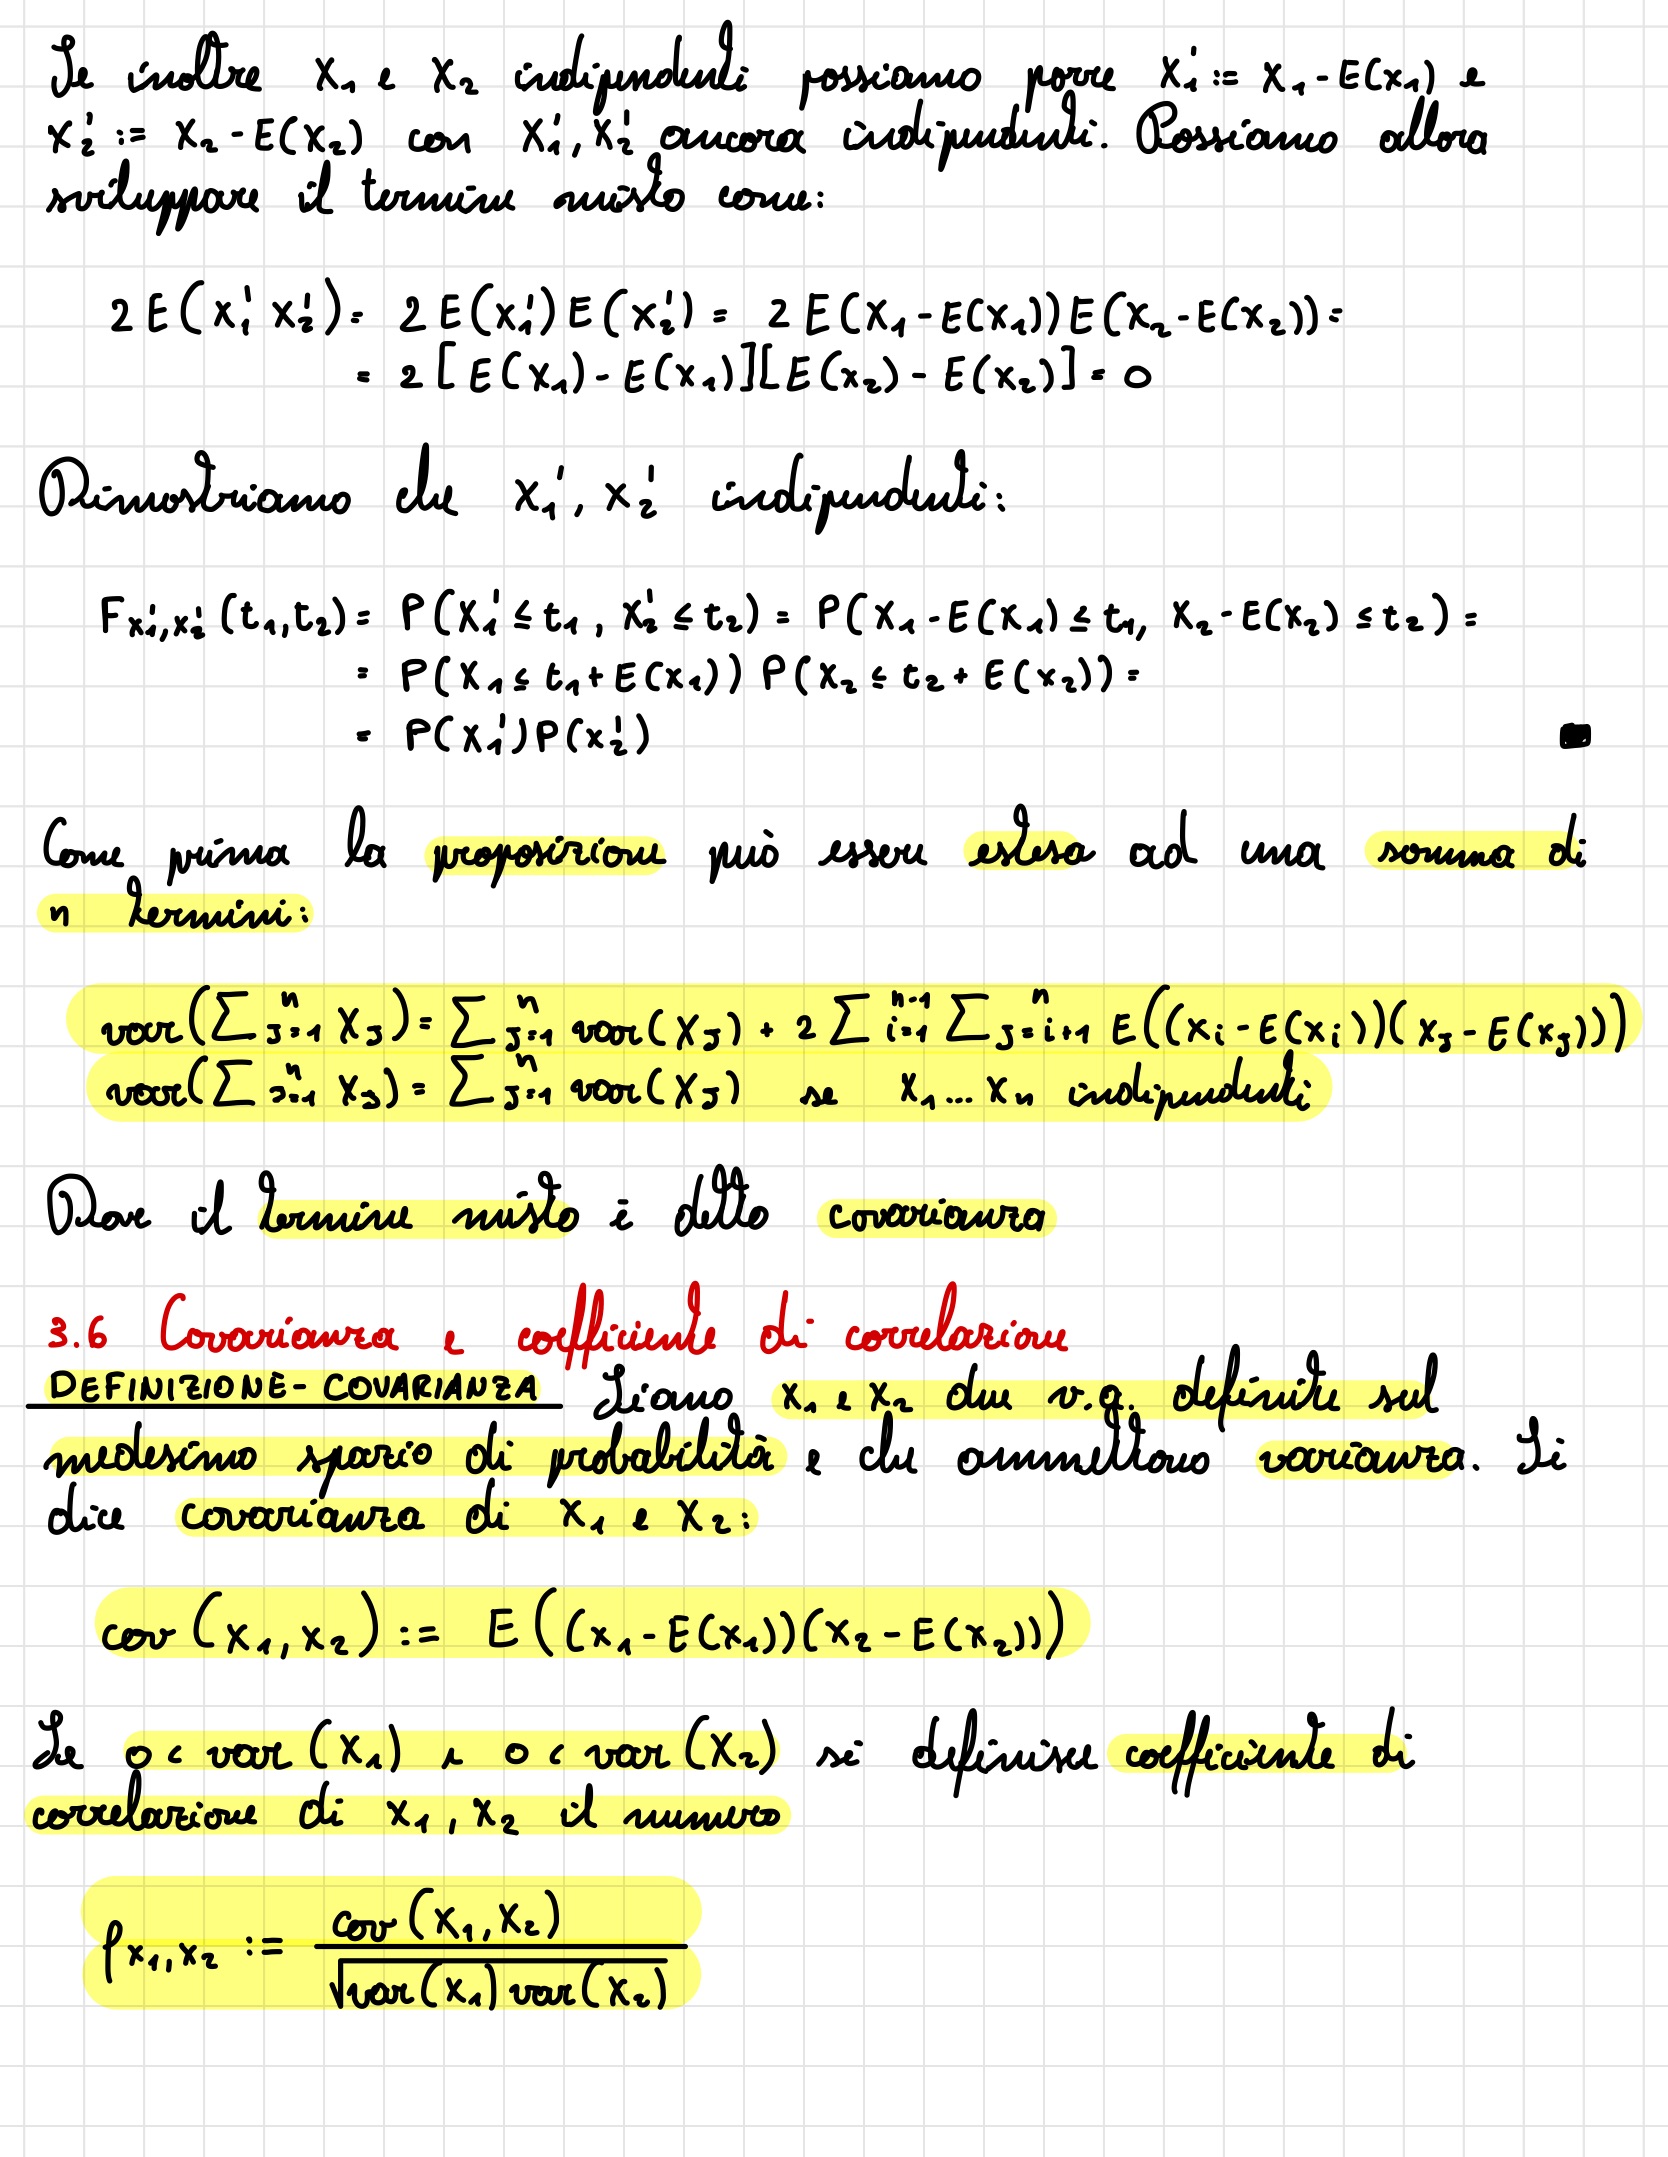 Se inoltre X₁ e X₂ indipendenti possiamo porre X₁' := X₁ - E(X₁) e
X₂' := X₂ - E(X₂) con X₁', X₂' ancora indipendenti. Possiamo allora
sviluppare il termine misto come:
2E(X₁' X₂') = 2E(X₁')E(X₂') = 2E(X₁ - E(X₁))E(X₂ - E(X₂)) =
= 2[E(X₁) - E(X₁)][E(X₂) - E(X₂)] = 0
Dimostriamo che X₁', X₂' indipendenti:
F_{X₁',X₂'}(t₁,t₂) = P(X₁' ≤ t₁, X₂' ≤ t₂) = P(X₁ - E(X₁) ≤ t₁, X₂ - E(X₂) ≤ t₂) =
= P(X₁ ≤ t₁ + E(X₁)) P(X₂ ≤ t₂ + E(X₂)) =
= P(X₁')P(X₂') ■
Come prima la proposizione può essere estesa ad una somma di
n termini:
var(∑_{j=1}^{n} X_j) = ∑_{j=1}^{n} var(X_j) + 2∑_{i=1}^{n-1} ∑_{j=i+1}^{n} E((X_i - E(X_i))(X_j - E(X_j)))
var(∑_{j=1}^{n} X_j) = ∑_{j=1}^{n} var(X_j) se X₁...Xₙ indipendenti
Dove il termine misto è detto covarianza
3.6 Covarianza e coefficiente di correlazione
DEFINIZIONE - COVARIANZA Siano X₁ e X₂ due v.a. definite sul
medesimo spazio di probabilità e che ammettono varianza. Si
dice covarianza di X₁ e X₂:
cov(X₁, X₂) := E((X₁ - E(X₁))(X₂ - E(X₂)))
Se 0 < var(X₁) e 0 < var(X₂) si definisce coefficiente di
correlazione di X₁, X₂ il numero
ρ_{X₁,X₂} := cov(X₁, X₂) / √(var(X₁) var(X₂))